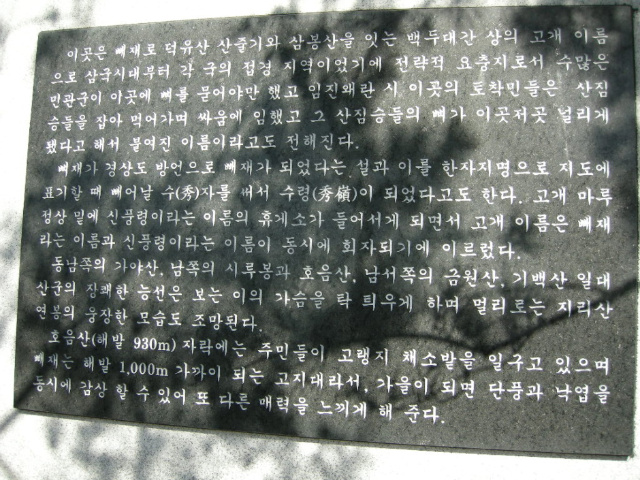 이곳은 빼재로 덕유산 산줄기와 삼봉산을 잇는 백두대간 상의 고개 이름
으로 삼국시대부터 각 국의 접경 지역이었기에 전략적 요충지로서 수많은
민관군이 이곳에 뼈를 묻어야만 했고 임진왜란 시 이곳의 토착민들은 산짐
승들을 잡아 먹어가며 싸움에 임했고 그 산짐승들의 뼈가 이곳저곳 널리게
됐다고 해서 붙여진 이름이라고도 전해진다.
뼈재가 경상도 방언으로 빼재가 되었다는 설과 이를 한자지명으로 지도에
표기할 때 빼어날 수(秀)자를 써서 수령(秀嶺)이 되었다고도 한다. 고개 마루
정상 밑에 신풍령이라는 이름의 휴게소가 들어서게 되면서 고개 이름은 빼재
라는 이름과 신풍령이라는 이름이 동시에 회자되기에 이르렀다.
동남쪽의 가야산, 남쪽의 시루봉과 호음산, 남서쪽의 금원산, 기백산 일대
산군의 장쾌한 능선은 보는 이의 가슴을 탁 틔우게 하며 멀리로는 지리산
연봉의 웅장한 모습도 조망된다.
호음산(해발 930m) 자락에는 주민들이 고랭지 채소밭을 일구고 있으며
빼재는 해발 1,000m 가까이 되는 고지대라서, 가을이 되면 단풍과 낙엽을
동시에 감상 할 수 있어 또 다른 매력을 느끼게 해 준다.